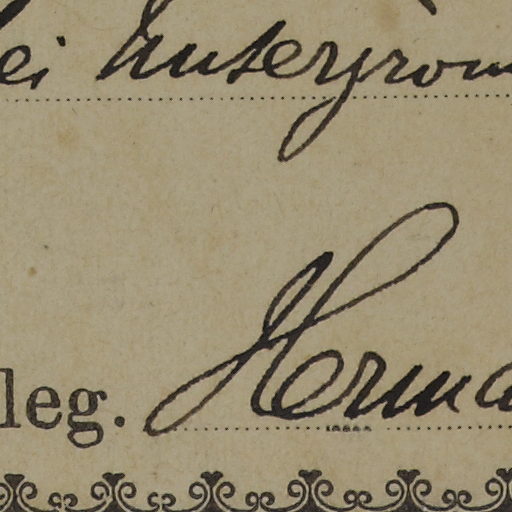 bei Untergrom
leg. Herma